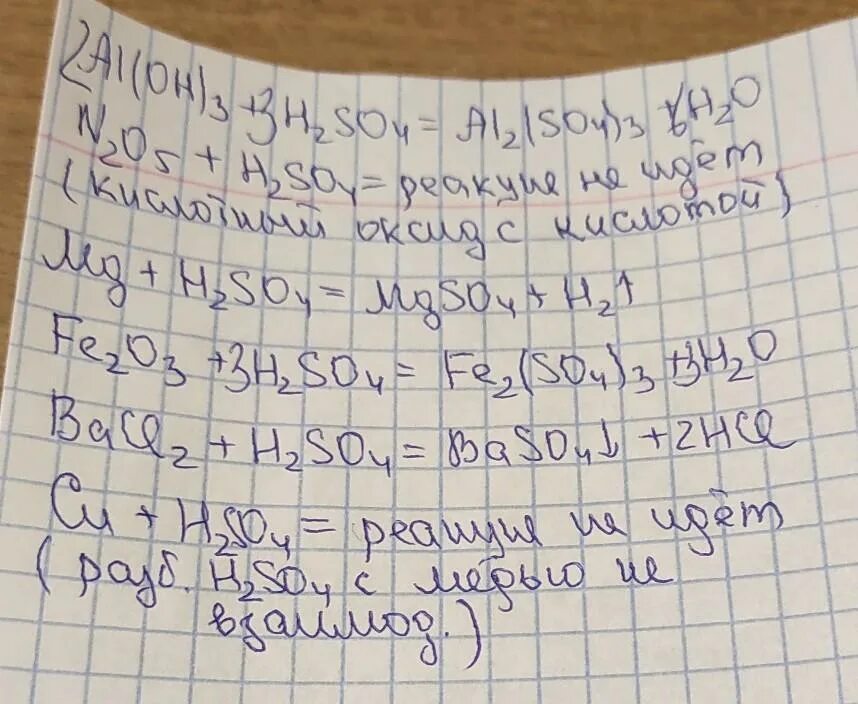 2Al(OH)₃ + 3H₂SO₄ = Al₂(SO₄)₃ + 6H₂O
N₂O₅ + H₂SO₄ = реакция не идёт
(кислотный оксид с кислотой)
Mg + H₂SO₄ = MgSO₄ + H₂↑
Fe₂O₃ + 3H₂SO₄ = Fe₂(SO₄)₃ + 3H₂O
BaCl₂ + H₂SO₄ = BaSO₄↓ + 2HCl
Cu + H₂SO₄ = реакция не идёт
(разб. H₂SO₄ с медью не
взаимод.)